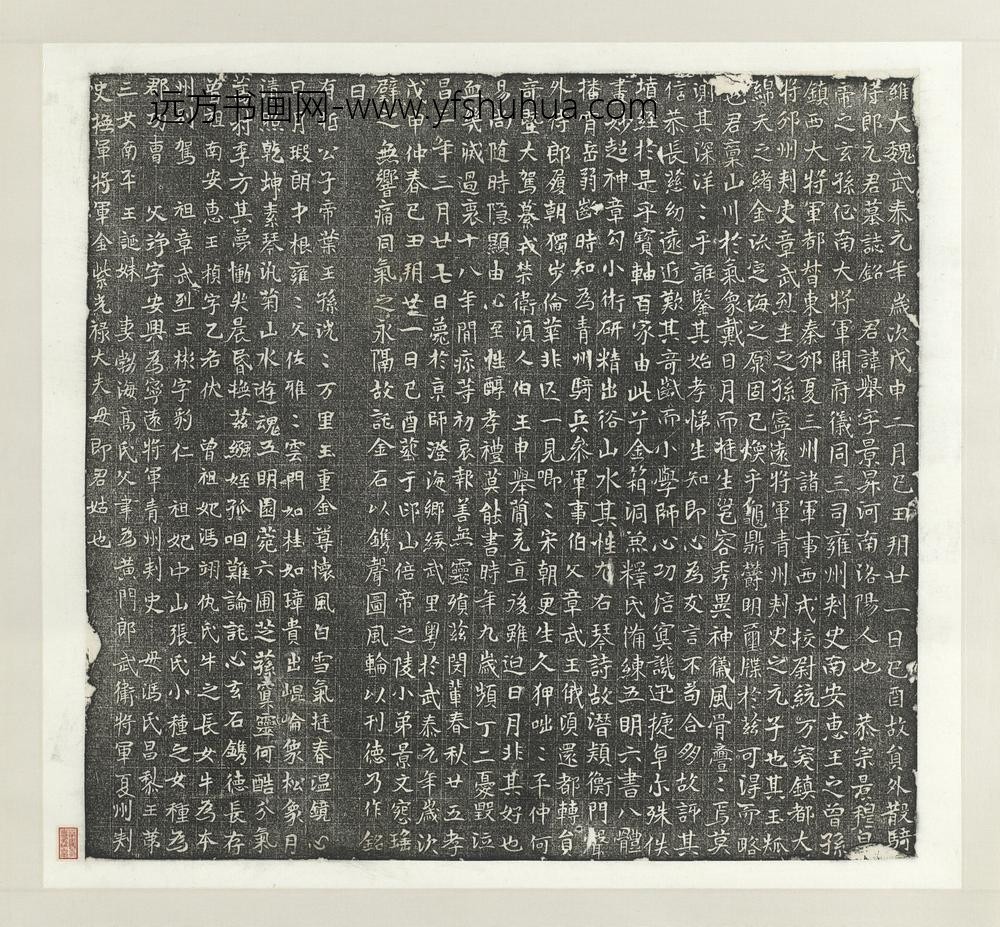 維大魏武泰元年歲次戊申二月己丑朔廿一日己酉故員外散騎
侍郎元君墓誌銘　君諱舉字景昇河南洛陽人也　恭宗景穆皇
帝之玄孫征南大將軍開府儀同三司雍州刺史南安惠王之曾孫
鎮西大將軍都督東秦邠夏三州諸軍事西戎校尉統万突鎮都大
將邠州刺史章武烈王之孫寧遠將軍青州刺史之元子也其玉
綿天之緒金流定海之源固已煥乎龜鼎鬱明璽牒於茲可得而略
也君稟山川於氣象戴日月而挺生岂容秀異神儀風骨亹亹焉莫
測其深洋洋乎誰鑒其始孝悌生知即心為友言不苟合多故許其
信恭長慈幼遠近歎其奇齓而小學師心功倍寞譏迅㨗卓尔殊佚
墳經於是乎寶軸百家由此乎金箱洞兼釋氏俻練五明六書八體
書妙超神章勾小術研精出俗山水其性左右琴詩故潛頹衡門聲
播青岳弱齒時知為青州騎兵參軍事伯父章武王俄頃還都轉員
外侍郎履朝獨步倫華非匹一見唧唧宋朝更生久狎咄咄子仲何
奇醫大駕纂戎禁衛湏人伯王申舉蕑充直後雖迫日月非其好也
易同隨時隱顯由心至性醇孝禮莫能書時年九歲頻丁二憂毀泣
血幾滅過哀十八年間痳等初哀報善無靈殞茲閔輩春秋廿五孝
昌年三月廿七日薨於京師澄海鄉綏武里粵於武泰元年歲次
戊申仲春己丑朔廿一日己酉葬于邙山倍帝之陵小弟景文惌瑤
璧之無響痛同氣之永隔故託金石以鐫聲圖風輪以刊德乃作銘
曰
有晢公子帝葉王孫洸洸万里玉重金尊懷風白雪氣挺春温鏡心
日月瑕朗才根雍雍父佐雅雅雲門如桂如璋貴出崐崘象松象月
清照乾坤素琴汎菊山水遊魂五明園菀六圃芝蓀寞靈何酷
李方其夢慟尖晨昏撫茲緥姪孤呬難論託心玄石鐫德長存
曾祖南安惠王楨字乙若伏　曾祖妃馮翊仇氏牛之長女牛為本
州別駕　祖章武烈王彬字豹仁　祖妃中山張氏小種之女種為
郡功曹　父竫字安興為寧遠將軍青州刺史　毋馮氏昌黎王第
三女南平王誕妹　妻勃海高氏父聿為黃門郎武衛將軍夏州刺
史撫軍將軍金紫光祿大夫毋即君姑也
远方书画网-www.yfshuhua.com